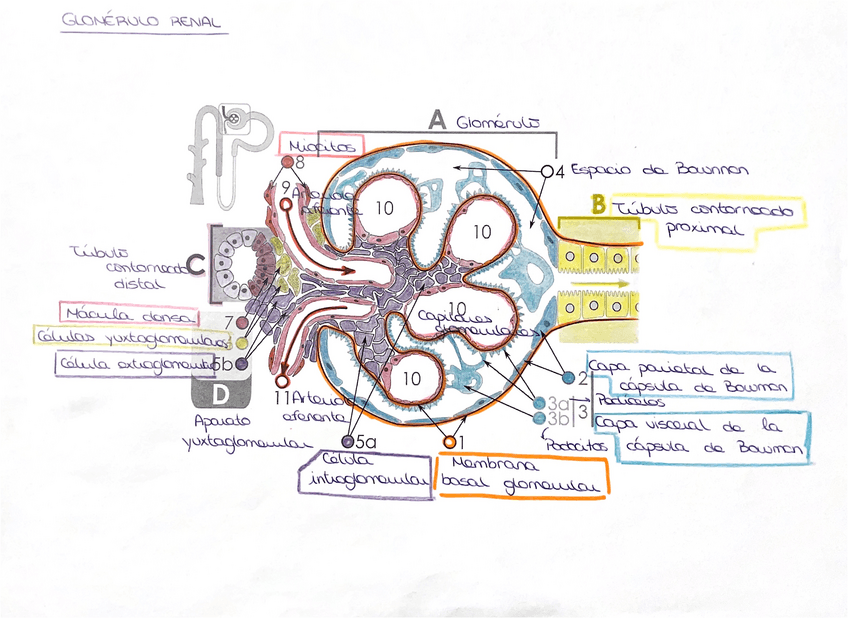 GLOMÉRULO RENAL
A Glomérulo
Miocitos
8
9 Arteriola
aferente
4 Espacio de Bowman
B Túbulo contorneado
proximal
10
10
Túbulo
contorneado
distal
C
10
Capilares
glomerulares
Mácula densa
7
Células yuxtaglomerulares
Célula extraglomerular 5b
D
Aparato
yuxtaglomerular
10
11 Arteriola
eferente
2 Capa parietal de la
cápsula de Bowman
3a
3b
3
Podocitos
Capa visceral de la
cápsula de Bowman
Podocitos
5a
Célula
intraglomerular
1
Membrana
basal glomerular